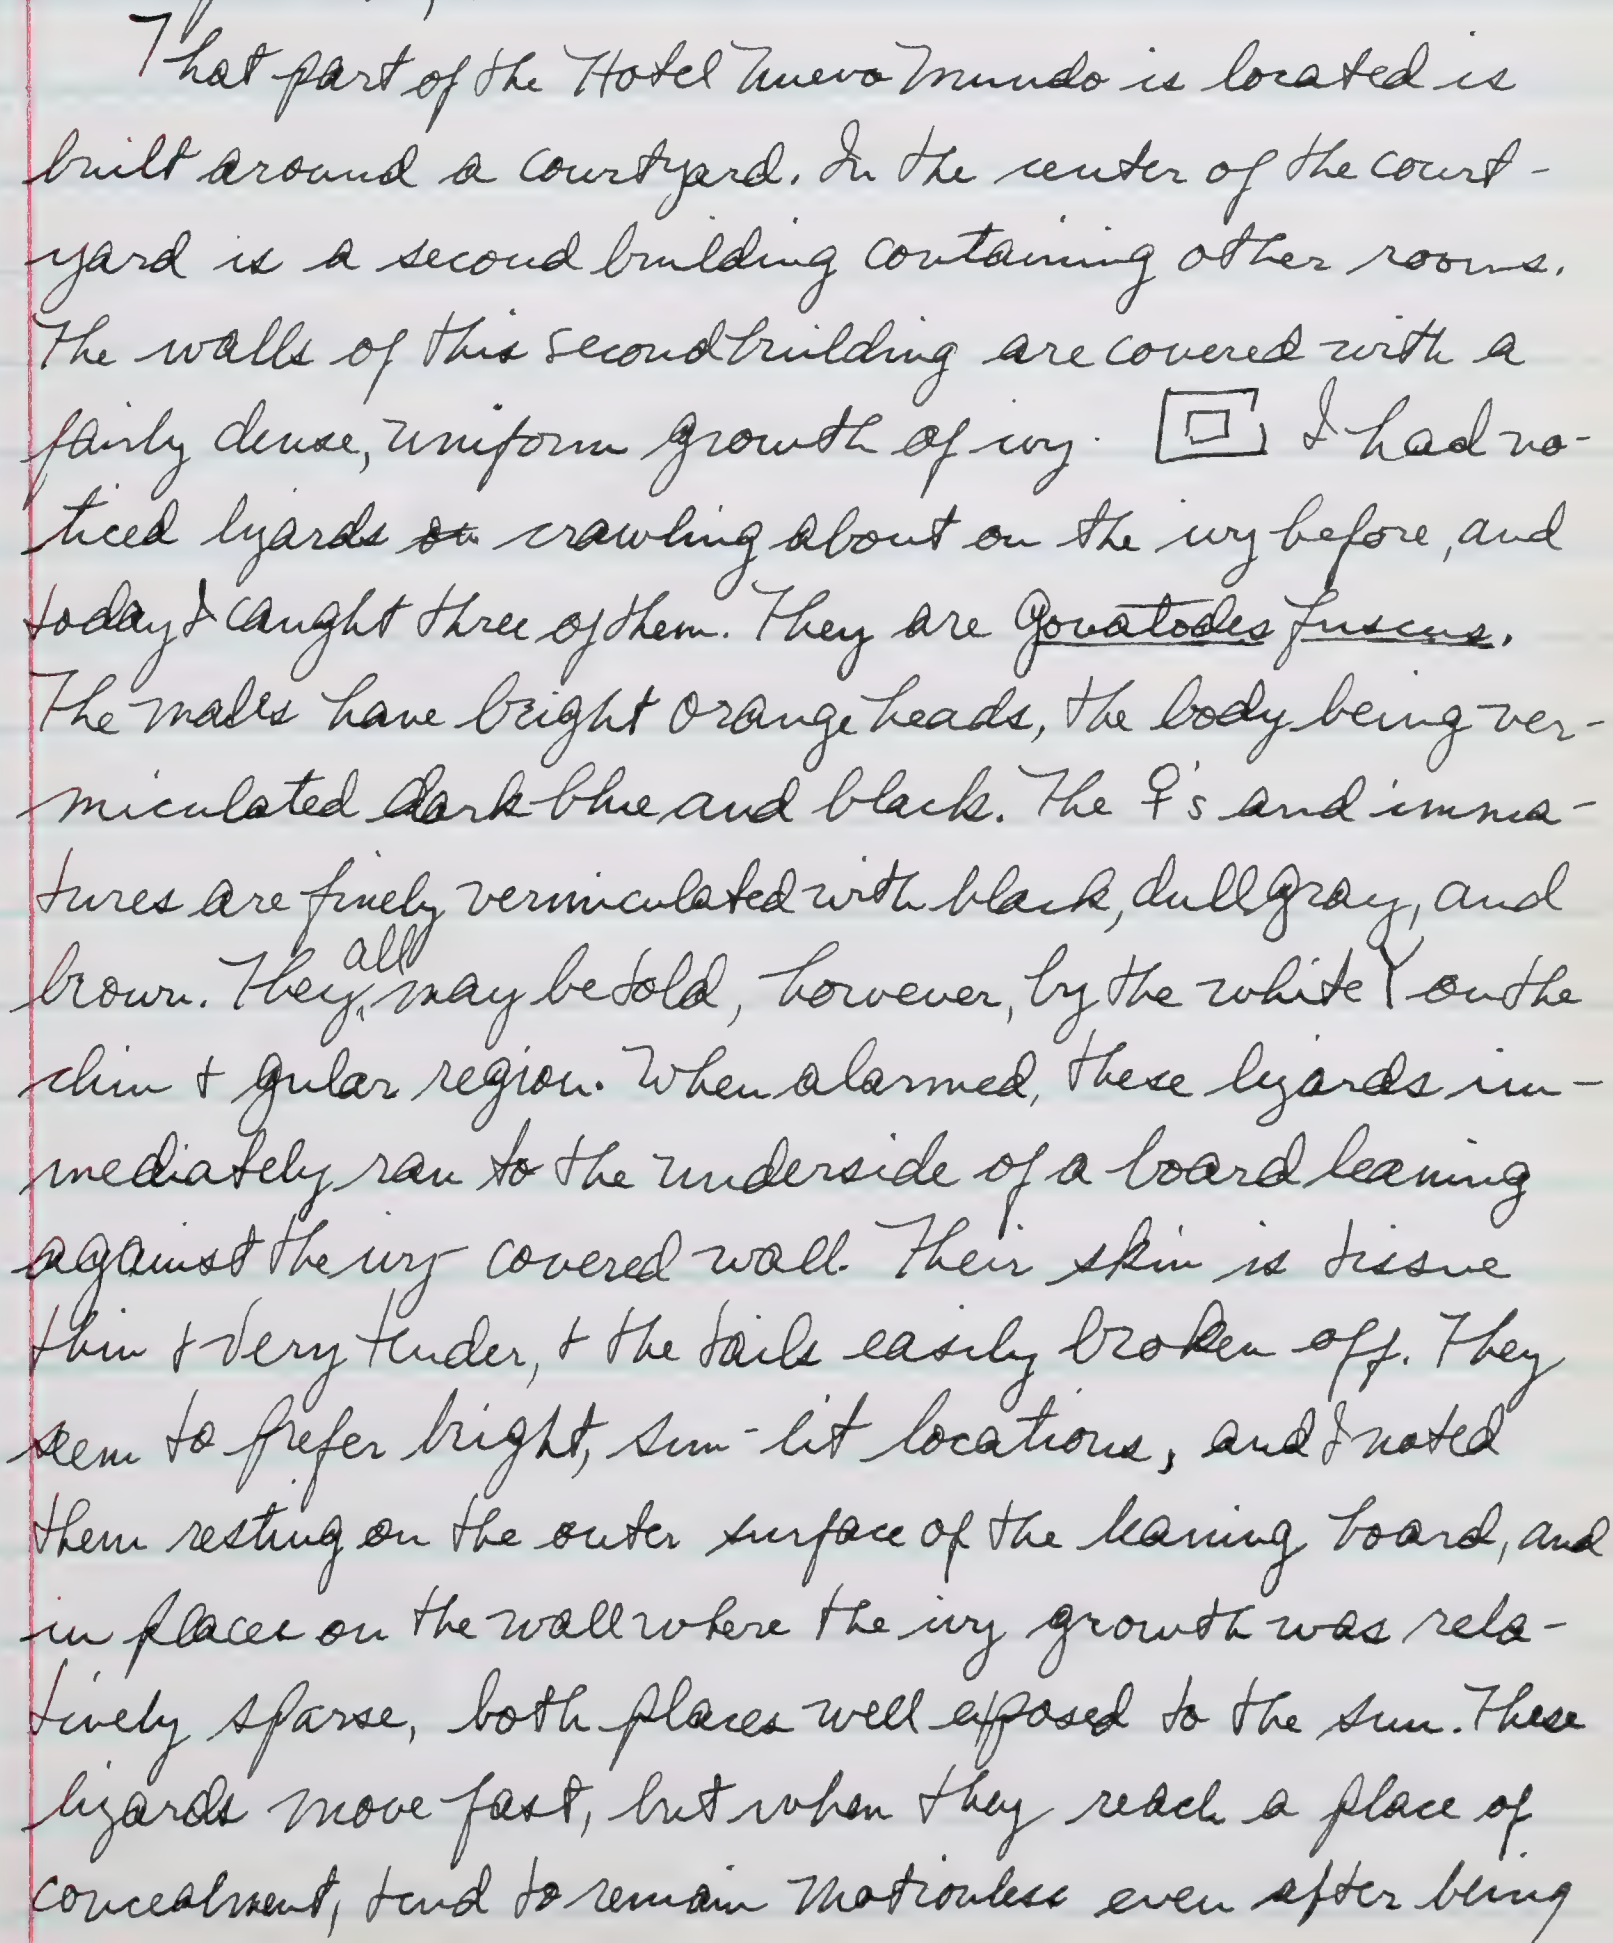 That part of the Hotel Nuevo Mundo is located is
built around a courtyard. In the center of the court-
yard is a second building containing other rooms.
The walls of this second building are covered with a
fairly dense, uniform growth of ivy. I had no-
ticed lizards on crawling about on the ivy before, and
today I caught three of them. They are Gonatodes fuscus.
The males have bright orange heads, the body being ver-
miculated dark blue and black. The ♀'s and imma-
tures are finely vermiculated with black, dull gray, and
brown. They all may be told, however, by the white Y on the
chin + gular region. When alarmed, these lizards im-
mediately ran to the underside of a board leaning
against the ivy covered wall. Their skin is tissue
thin + very tender, + the tails easily broken off. They
seem to prefer bright, sun-lit locations, and I noted
them resting on the outer surface of the leaning board, and
in places on the wall where the ivy growth was rela-
tively sparse, both places well exposed to the sun. These
lizards move fast, but when they reach a place of
concealment, tend to remain motionless even after being